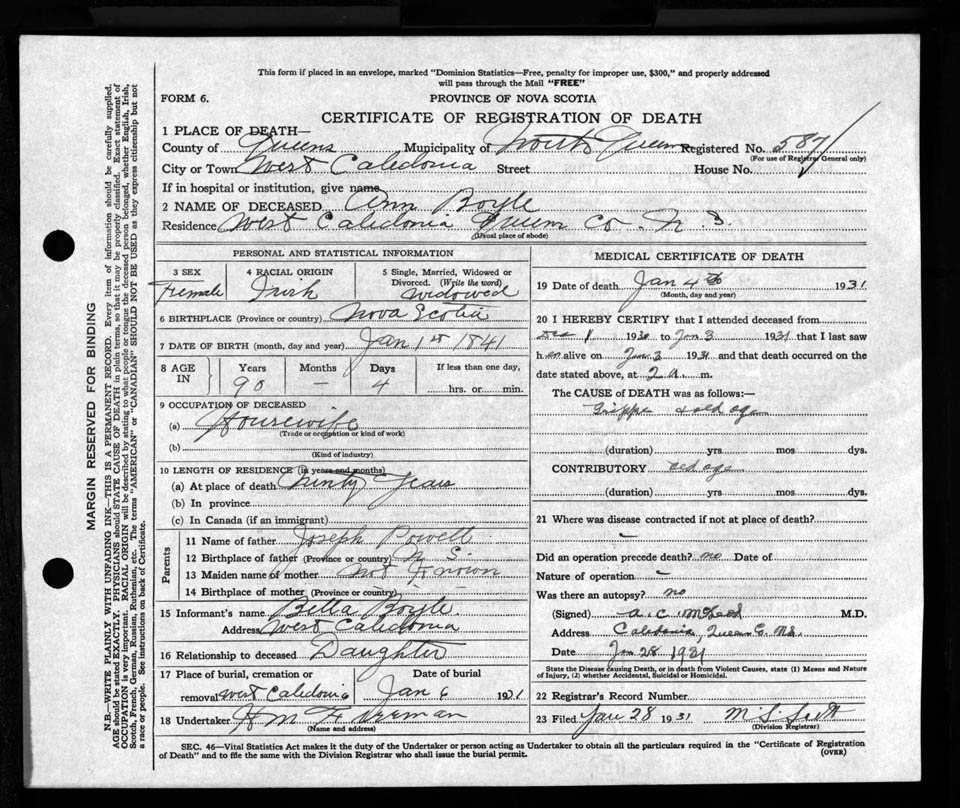 This form if placed in an envelope, marked "Dominion Statistics—Free, penalty for improper use, $300," and properly addressed
will pass through the Mail "FREE"
FORM 6.
PROVINCE OF NOVA SCOTIA
CERTIFICATE OF REGISTRATION OF DEATH
1 PLACE OF DEATH—
County of Queens Municipality of North Queens Registered No. 587
(For use of Registrar General only)
City or Town West Caledonia Street House No.
If in hospital or institution, give name
2 NAME OF DECEASED Ann Boyle
Residence West Caledonia Queens Co. N. S.
(Usual place of abode)
PERSONAL AND STATISTICAL INFORMATION
3 SEX
Female
4 RACIAL ORIGIN
Irish
5 Single, Married, Widowed or
Divorced. (Write the word)
Widowed
6 BIRTHPLACE (Province or country) Nova Scotia
7 DATE OF BIRTH (month, day and year) Jan 1st 1841
8 AGE IN
Years Months Days If less than one day,
90 – 4 hrs. or min.
9 OCCUPATION OF DECEASED
(a) Housewife
(Trade or occupation or kind of work)
(b)
(Kind of industry)
10 LENGTH OF RESIDENCE (in years and months)
(a) At place of death Ninty Years
(b) In province
(c) In Canada (if an immigrant)
Parents
11 Name of father Joseph Powell
12 Birthplace of father (Province or country) N. S.
13 Maiden name of mother Not Known
14 Birthplace of mother (Province or country) – –
15 Informant's name Bella Boyle
Address West Caledonia
16 Relationship to deceased Daughter
17 Place of burial, cremation or Date of burial
removal West Caledonia Jan 6 1931
18 Undertaker Freeman
(Name and address)
MEDICAL CERTIFICATE OF DEATH
19 Date of death Jan 4th 1931
(Month, day and year)
20 I HEREBY CERTIFY that I attended deceased from
Dec 1 1930 to Jan 3 1931 that I last saw
h er alive on Jan 3 1931 and that death occurred on the
date stated above, at 2 a. m.
The CAUSE of DEATH was as follows:—
Grippe & old age
(duration) yrs mos dys.
CONTRIBUTORY old age
(duration) yrs mos dys.
21 Where was disease contracted if not at place of death?
–
Did an operation precede death? no Date of
Nature of operation –
Was there an autopsy? no
(Signed) A. C. McLeod M.D.
Address Caledonia, Queens Co. N.S.
Date Jan 28 1931
State the Disease causing Death, or in death from Violent Causes, state (1) Means and Nature
of Injury, (2) whether Accidental, Suicidal or Homicidal.
22 Registrar's Record Number
23 Filed Jan 28 1931
(Division Registrar)
SEC. 46—Vital Statistics Act makes it the duty of the Undertaker or person acting as Undertaker to obtain all the particulars required in the "Certificate of Registration
of Death" and to file the same with the Division Registrar who shall issue the burial permit.
(OVER)
MARGIN RESERVED FOR BINDING
N.B.—WRITE PLAINLY WITH UNFADING INK—THIS IS A PERMANENT RECORD. Every item of information should be carefully supplied.
AGE should be stated EXACTLY. PHYSICIANS should STATE CAUSE OF DEATH in plain terms, so that it may be properly classified. Exact statement of
OCCUPATION is very important. RACIAL ORIGIN will be described by stating to what people or tongue the deceased person belonged, whether English, Irish,
Scotch, French, German, Russian, Ruthenian, etc. The terms "AMERICAN" or "CANADIAN" SHOULD NOT BE USED as they express citizenship but not
a race or people. See instructions on back of Certificate.